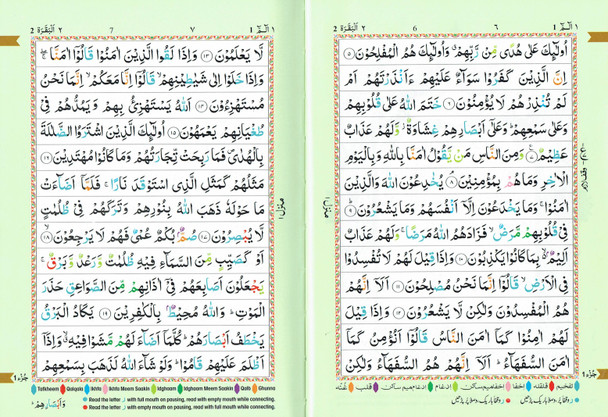 الٓمّٓ ١ ٦ 6 ٢ اَلْبَقَرَة 2
اُولٰٓئِكَ عَلٰى هُدًى مِّنْ رَّبِّهِمْ ۗ وَاُولٰٓئِكَ هُمُ الْمُفْلِحُوْنَ ۵
اِنَّ الَّذِيْنَ كَفَرُوْا سَوَآءٌ عَلَيْهِمْ ءَاَنْذَرْتَهُمْ اَمْ
لَمْ تُنْذِرْهُمْ لَا يُؤْمِنُوْنَ ۶ خَتَمَ اللهُ عَلٰى قُلُوْبِهِمْ
وَعَلٰى سَمْعِهِمْ ۭ وَعَلٰٓى اَبْصَارِهِمْ غِشَاوَةٌ ۡ وَّلَهُمْ عَذَابٌ
عَظِيْمٌ ۷ وَمِنَ النَّاسِ مَنْ يَّقُوْلُ اٰمَنَّا بِاللهِ وَبِالْيَوْمِ
الْاٰخِرِ وَمَا هُمْ بِمُؤْمِنِيْنَ ۸ يُخٰدِعُوْنَ اللهَ وَالَّذِيْنَ
اٰمَنُوْا ۚ وَمَا يَخْدَعُوْنَ اِلَّآ اَنْفُسَهُمْ وَمَا يَشْعُرُوْنَ ۹
فِىْ قُلُوْبِهِمْ مَّرَضٌ ۙ فَزَادَهُمُ اللهُ مَرَضًا ۚ وَلَهُمْ عَذَابٌ
اَلِيْمٌ ۢ بِمَا كَانُوْا يَكْذِبُوْنَ ۱۰ وَاِذَا قِيْلَ لَهُمْ لَا تُفْسِدُوْا
فِى الْاَرْضِ ۙ قَالُوْٓا اِنَّمَا نَحْنُ مُصْلِحُوْنَ ۱۱ اَلَآ اِنَّهُمْ
هُمُ الْمُفْسِدُوْنَ وَلٰكِنْ لَّا يَشْعُرُوْنَ ۱۲ وَاِذَا قِيْلَ
لَهُمْ اٰمِنُوْا كَمَآ اٰمَنَ النَّاسُ قَالُوْٓا اَنُؤْمِنُ كَمَآ
اٰمَنَ السُّفَهَآءُ ۭ اَلَآ اِنَّهُمْ هُمُ السُّفَهَآءُ وَلٰكِنْ
منزل ١
الٓمّٓ ١ ٧ 7 ٢ اَلْبَقَرَة 2
لَّا يَعْلَمُوْنَ ۱۳ وَاِذَا لَقُوا الَّذِيْنَ اٰمَنُوْا قَالُوْٓا اٰمَنَّا ۖ
وَاِذَا خَلَوْا اِلٰى شَيٰطِيْنِهِمْ ۙ قَالُوْٓا اِنَّا مَعَكُمْ ۙ اِنَّمَا نَحْنُ
مُسْتَهْزِءُوْنَ ۱۴ اَللهُ يَسْتَهْزِئُ بِهِمْ وَيَمُدُّهُمْ فِىْ
طُغْيَانِهِمْ يَعْمَهُوْنَ ۱۵ اُولٰٓئِكَ الَّذِيْنَ اشْتَرَوُا الضَّلٰلَةَ
بِالْهُدٰى ۠ فَمَا رَبِحَتْ تِّجَارَتُهُمْ وَمَا كَانُوْا مُهْتَدِيْنَ ۱۶
مَثَلُهُمْ كَمَثَلِ الَّذِى اسْتَوْقَدَ نَارًا ۚ فَلَمَّآ اَضَآءَتْ
مَا حَوْلَهٗ ذَهَبَ اللهُ بِنُوْرِهِمْ وَتَرَكَهُمْ فِىْ ظُلُمٰتٍ
لَّا يُبْصِرُوْنَ ۱۷ صُمٌّۢ بُكْمٌ عُمْىٌ فَهُمْ لَا يَرْجِعُوْنَ ۱۸
اَوْ كَصَيِّبٍ مِّنَ السَّمَآءِ فِيْهِ ظُلُمٰتٌ وَّرَعْدٌ وَّبَرْقٌ ۚ
يَجْعَلُوْنَ اَصَابِعَهُمْ فِىْٓ اٰذَانِهِمْ مِّنَ الصَّوَاعِقِ حَذَرَ
الْمَوْتِ ۭ وَاللهُ مُحِيْطٌۢ بِالْكٰفِرِيْنَ ۱۹ يَكَادُ الْبَرْقُ
يَخْطَفُ اَبْصَارَهُمْ ۭ كُلَّمَآ اَضَآءَ لَهُمْ مَّشَوْا فِيْهِ ۙ وَاِذَآ
اَظْلَمَ عَلَيْهِمْ قَامُوْا ۭ وَلَوْ شَآءَ اللهُ لَذَهَبَ بِسَمْعِهِمْ
منزل ١
Tafkheem Qalqala Ikhfa Ikhfa Meem Saakin Idghaam Idghaam Meem Saakin Qalb Ghunna
Read the letter with full mouth on pausing, read with empty mouth while connecting.
Read the letter with empty mouth on pausing, read with full mouth while connecting.
وَاَبْصَارِهِمْ ۭ